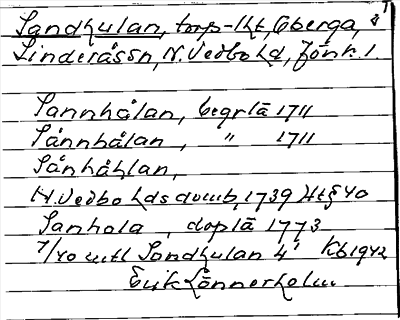 Sandkulan, torp-lht, Öberga,
Linderåssn, N.Vedbo hd, Jönk. l.
Sannhålan, begrlä 1711
Sånnhålan, " 1711
Sånhåhlan,
N.Vedbo hds domb, 1739 Ht§40
Sanhola, doplä 1773
7/40 mtl Sandkulan 4¹ Kb1942
Erik Lönnerholm